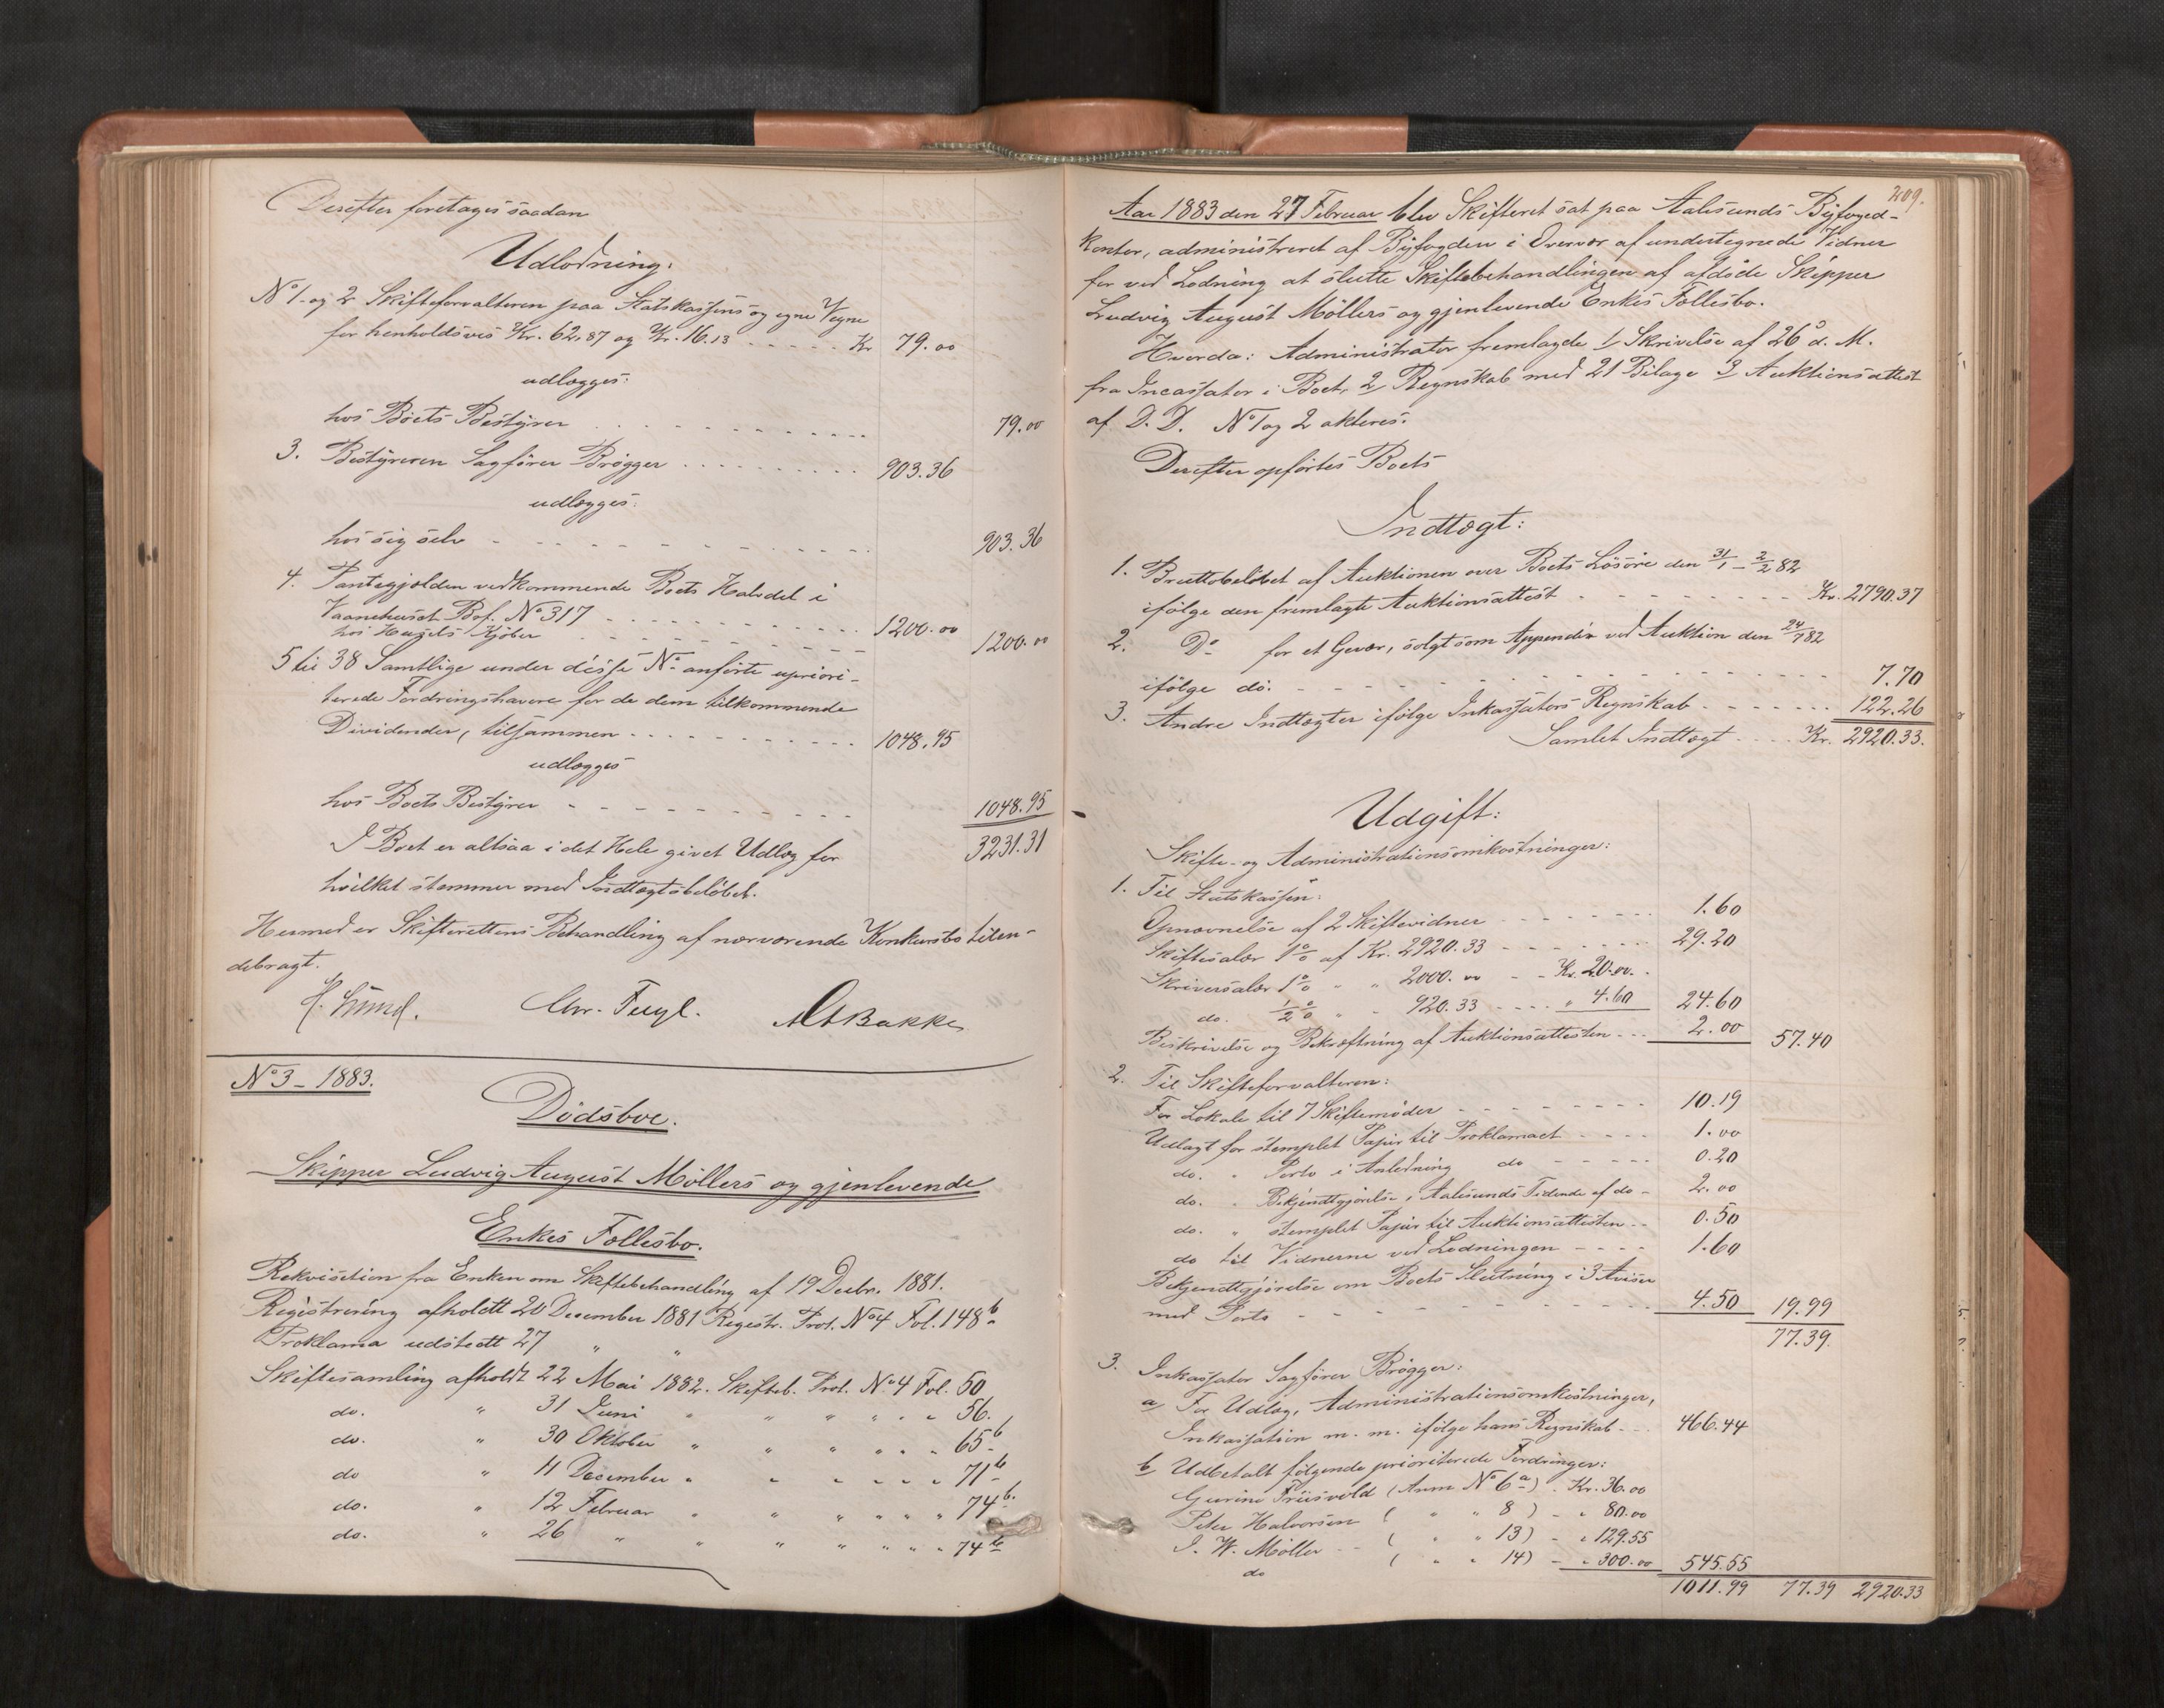 Derefter foretages saadan
Udlodning.
No 1 og 2 Skifteforvalteren paa Statskassens og egne Vegne
for henholdsvis Kr. 62.87 og Kr. 16.13 - - - - - Kr 79.00
udlægges:
hos Boets Bestyrer . . . . . . . . . . . 79.00
3. Bestyreren Sagfører Brøgger . . . . . . . . . 903.36
udlægges:
hos sig selv - - - - - - - - - - - 903.36
4. Pantegjælden vedkommende Boets Halvdel i
Vaanehuset Bof. No 317 - - - - - - - - - - - 1200.00
hos Husets Kjøber - - - - - - - - - - - 1200.00
5 til 38 Samtlige under disse No anførte upriori-
terede Fordringshavere for de dem tilkommende
Dividender, tilsammen - - - - - - - - - - - 1048.95
udlægges
hos Boets Bestyrer - - - - - - - - - - - 1048.95
I Boet er altsaa i det Hele givet Udlæg for 3231.31
hvilket stemmer med Indtægtsbeløbet.
Hermed er Skifterettens Behandling af nærværende Konkursbo tilen-
debragt.
Chr. Fugl. A Bakke
No 3 - 1883.
Dødsboe.
Skipper Ludvig August Møllers og gjenlevende
Enkes Fællesbo.
Rekvisition fra Enken om Skiftebehandling af 19 Decbr. 1881.
Registrering afholdt 20 December 1881 Registr. Prot. No 4 Fol. 148 b
Proklama udstedt 27 " "
Skiftesamling afholdt 22 Mai 1882. Skifteb. Prot. No 4 Fol. 50
do. " 31 Juni " " " " " 56.
do. " 30 Oktober " " " " " 65 b
do " 11 December " " " " " 71 b
do. " 12 Februar " " " " " 74 b.
do. " 26 " " " " " " 74 b
209.
Aar 1883 den 27 Februar blev Skifteret sat paa Aalesunds Byfoged-
kontor, administreret af Byfogden i Overvær af undertegnede Vidner
for ved Lodning at slutte Skiftebehandlingen af afdøde Skipper
Ludvig August Møllers og gjenlevende Enkes Fællesbo.
Hvorda: Administrator fremlagde 1/ Skrivelse af 26 d. M.
fra Incassator i Boet, 2/ Regnskab med 21 Bilage 3/ Auktionsattest
af D. D. No 1 og 2 akteres.
Derefter opførtes Boets
Indtægt:
1. Bruttobeløbet af Auktionen over Boets Løsøre den 31/1 - 2/2 82
ifølge den fremlagte Auktionsattest - - - - - - - - - Kr. 2790.37
2. Do for et Gevær, solgt som Appendix ved Auktion den 24/7 82
ifølge do. - - - - - - - - - - - - - - - - 7.70
3. Andre Indtægter ifølge Inkassators Regnskab - - - - - - - 122.26
Samlet Indtægt - - - - Kr. 2920.33.
Udgift:
Skifte- og Administrationsomkostninger:
1. Til Statskassen:
Opnævnelse af 2 Skiftevidner - - - - - - - 1.60
Skiftesalær 1% af Kr. 2920.33 - - - - - - - 29.20
Skriversalær 1% " " 2000.00 - - Kr. 20.00 -
do. 1/2 % " " 920.33 - - - - " 4.60 24.60
Beskrivelse og Bekræftning af Auktionsattesten - - - 2.00 57.40
2. Til Skifteforvalteren:
For Lokale til 7 Skiftemøder - - - - - - - - 10.19
Udlagt for stemplet Papir til Proklamaet - - - - 1.00
do. " Porto i Anledning do - - - - - 0.20
do. " Bekjendtgjørelse i Aalesunds Tidende af do - 2.00
do. " stemplet Papir til Auktionsattesten - - 0.50
do til Vidnerne ved Lodningen - - - - 1.60
Bekjendtgjørelse om Boets Slutning i 3 Aviser
med Porto - - - - - - - - - - - 4.50 19.99
77.39.
3. Inkassator Sagfører Brøgger:
a For Udlæg, Administrationsomkostninger,
Inkassation m. m. ifølge hans Regnskab - - - 466.44
b Udbetalt følgende prioriterede Fordringer:
Gurine Friisvold (Anm No 6 a) . Kr. 36.00
Peter Halvorsen ( " " 8 ) - " 80.00
J. W. Møller - - ( " " 13) - " 129.55
do ( " " 14) - " 300.00 545.55
1011.99 77.39 2920.33